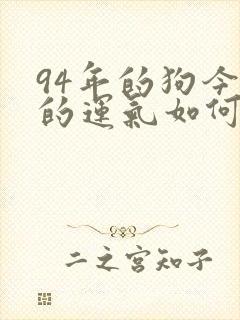 94年的狗今
的運氣如何
二之宫知子